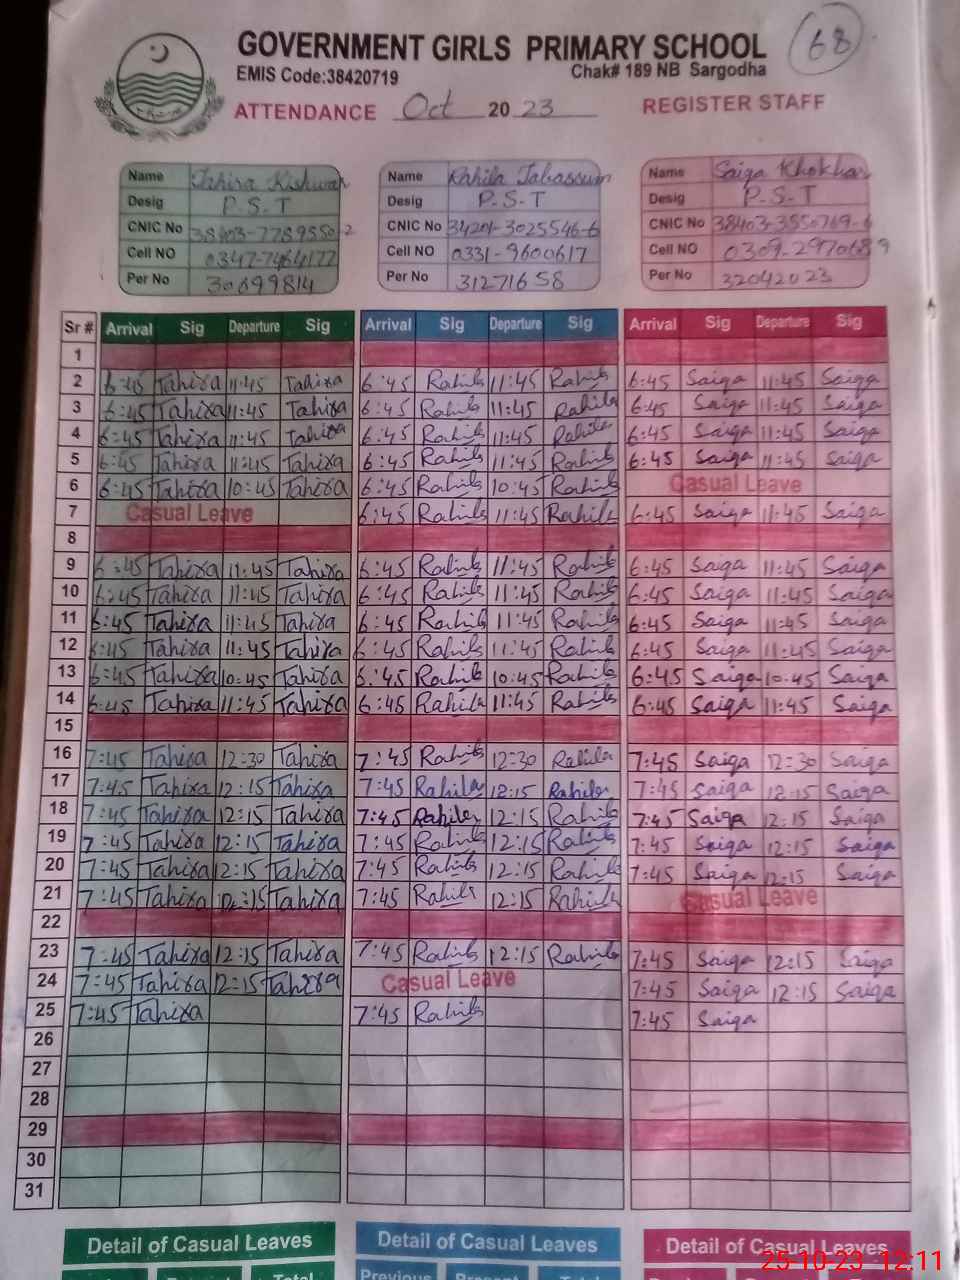 68
GOVERNMENT GIRLS PRIMARY SCHOOL
EMIS Code:38420719 Chak# 189 NB Sargodha
ATTENDANCE Oct 2023 REGISTER STAFF
Name Tahira Kishwar Name Rahila Tabassum Name Saiqa Khokhar
Desig P.S.T Desig P.S.T Desig P.S.T
CNIC No CNIC No 34201-3025546-6 CNIC No 38403-3550769-6
Cell NO Cell NO 0331-9600617 Cell NO 0309-2970689
Per No 30699814 Per No 31271658 Per No 32042023
Sr # Arrival Sig Departure Sig Arrival Sig Departure Sig Arrival Sig Departure Sig
1
2 6:45 Tahira 11:45 Tahira 6:45 Rahila 11:45 Rahila 6:45 Saiqa 11:45 Saiqa
3 6:45 Tahira 11:45 Tahira 6:45 Rahila 11:45 Rahila 6:45 Saiqa 11:45 Saiqa
4 6:45 Tahira 11:45 Tahira 6:45 Rahila 11:45 Rahila 6:45 Saiqa 11:45 Saiqa
5 6:45 Tahira 11:45 Tahira 6:45 Rahila 11:45 Rahila 6:45 Saiqa 11:45 Saiqa
6 6:45 Tahira 10:45 Tahira 6:45 Rahila 10:45 Rahila Casual Leave
7 Casual Leave 6:45 Rahila 11:45 Rahila 6:45 Saiqa 11:45 Saiqa
8
9 6:45 Tahira 11:45 Tahira 6:45 Rahila 11:45 Rahila 6:45 Saiqa 11:45 Saiqa
10 6:45 Tahira 11:45 Tahira 6:45 Rahila 11:45 Rahila 6:45 Saiqa 11:45 Saiqa
11 6:45 Tahira 11:45 Tahira 6:45 Rahila 11:45 Rahila 6:45 Saiqa 11:45 Saiqa
12 6:45 Tahira 11:45 Tahira 6:45 Rahila 11:45 Rahila 6:45 Saiqa 11:45 Saiqa
13 6:45 Tahira 10:45 Tahira 6:45 Rahila 10:45 Rahila 6:45 Saiqa 10:45 Saiqa
14 6:45 Tahira 11:45 Tahira 6:45 Rahila 11:45 Rahila 6:45 Saiqa 11:45 Saiqa
15
16 7:45 Tahira 12:30 Tahira 7:45 Rahila 12:30 Rahila 7:45 Saiqa 12:30 Saiqa
17 7:45 Tahira 12:15 Tahira 7:45 Rahila 12:15 Rahila 7:45 Saiqa 12:15 Saiqa
18 7:45 Tahira 12:15 Tahira 7:45 Rahila 12:15 Rahila 7:45 Saiqa 12:15 Saiqa
19 7:45 Tahira 12:15 Tahira 7:45 Rahila 12:15 Rahila 7:45 Saiqa 12:15 Saiqa
20 7:45 Tahira 12:15 Tahira 7:45 Rahila 12:15 Rahila 7:45 Saiqa 12:15 Saiqa
21 7:45 Tahira 12:15 Tahira 7:45 Rahila 12:15 Rahila Casual Leave
22
23 7:45 Tahira 12:15 Tahira 7:45 Rahila 12:15 Rahila 7:45 Saiqa 12:15 Saiqa
24 7:45 Tahira 12:15 Tahira Casual Leave 7:45 Saiqa 12:15 Saiqa
25 7:45 Tahira 7:45 Rahila 7:45 Saiqa
26
27
28
29
30
31
Detail of Casual Leaves Detail of Casual Leaves Detail of Casual Leaves
25-10-23 12:11
Total Previous Present Total